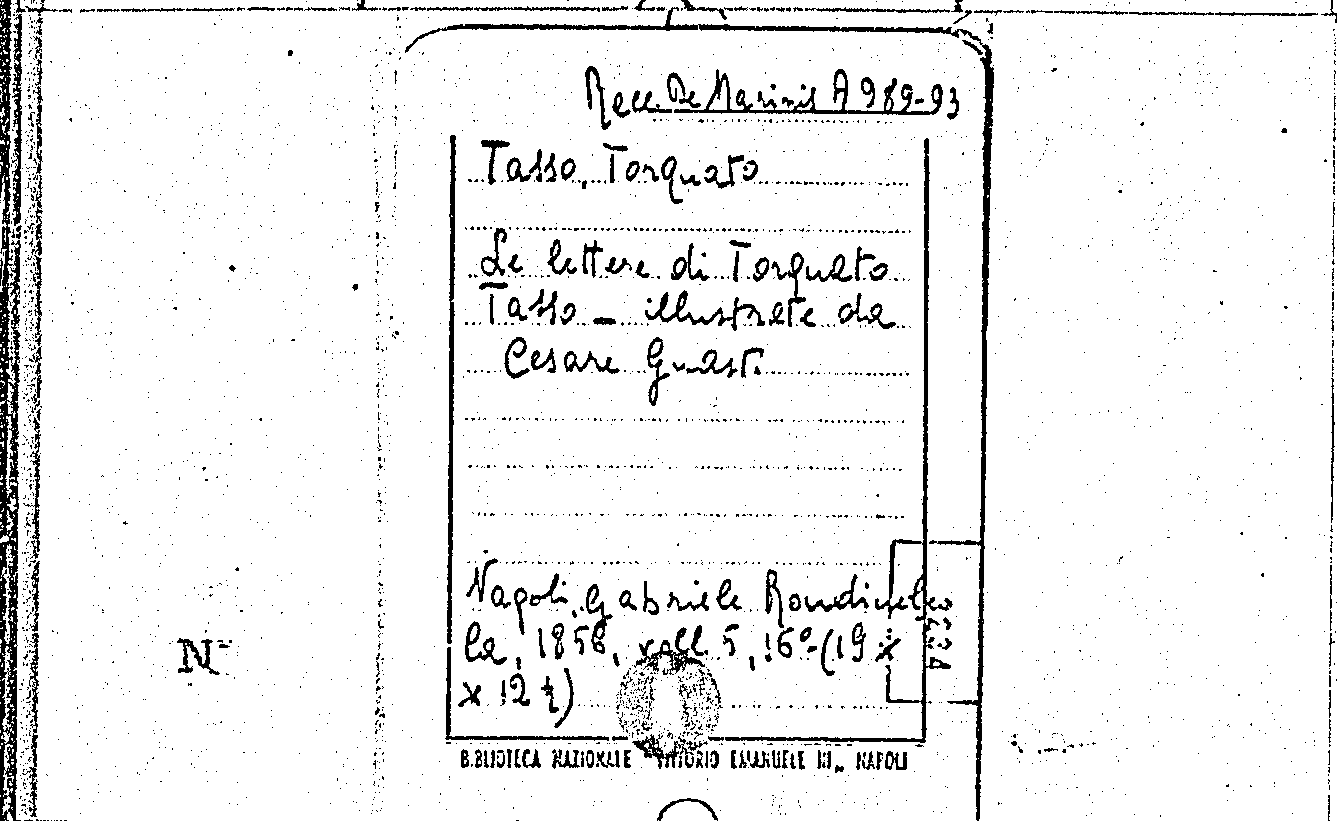 Racc. De Marinis A 989-93
Tasso, Torquato
Le lettere di Torquato
Tasso – illustrate da
Cesare Guasti
Napoli, Gabriele Rondinel
la, 1856, voll. 5, 16º (19 x
x 12 ½)
BIBLIOTECA NAZIONALE "VITTORIO EMANUELE III" NAPOLI
N